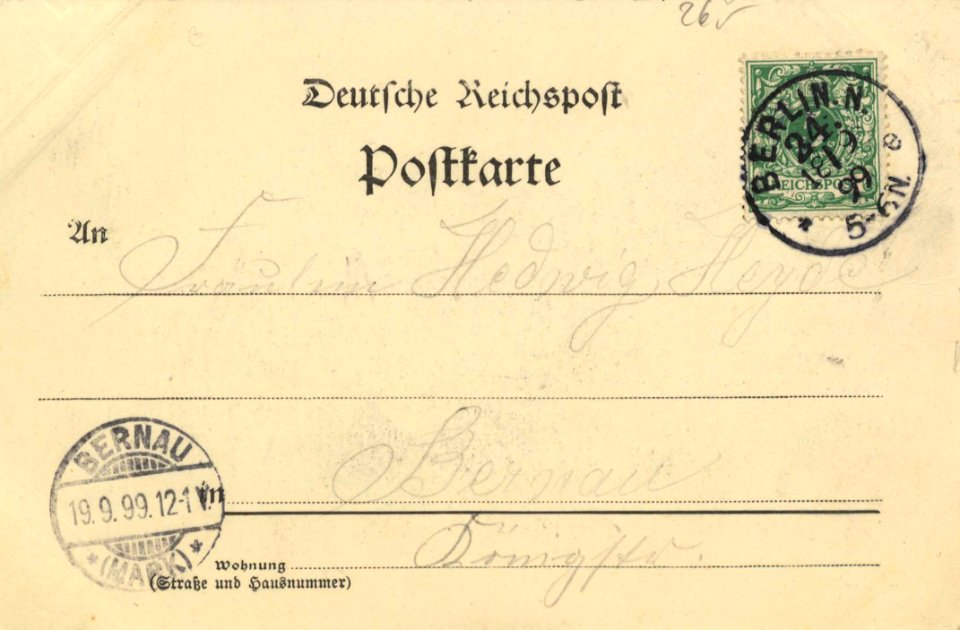 265
Deutsche Reichspost
Postkarte
BERLIN. N.
24.
18 9 99
5-6N.
* e
REICHSPOST
An Fräulein Hedwig
Bernau
BERNAU
19. 9. 99. 12-1 V.
* (MARK) *
in
Königstr.
Wohnung
(Straße und Hausnummer)